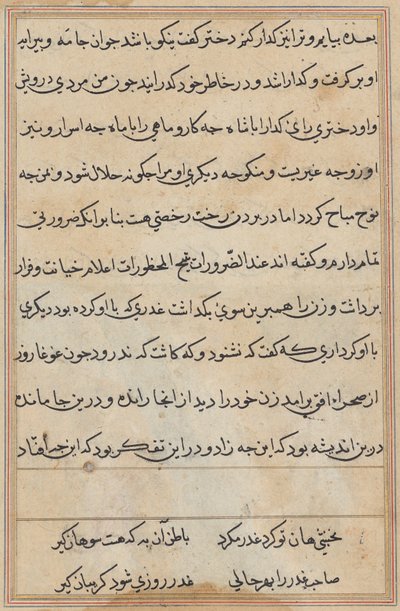 بعده بیایم و ترا نیز کدار کنم دختر کفت نیکو باشد جوان جامه و پیرایه
او برکرفت و کدارا شد و در خاطر خود کدرانید چون من مردی درویش
و او دختری رای کدا را با شاه چه کار و ماهی را با ماه چه اسرار و نیز
او زوجه غیریست و منکوحه دیکری او مرا چکونه حلال شود و بمن چه
نوح مباح کردد اما در بردن رخت رخصتی هست بنا بر انکه ضرورتی
تمام دارم و کفته اند عند الضّرورات تبیح المحظورات اعلام خیانت و فرار
برداشت و زن را همبرین سوی بکداشت غدری که با او کرده بود دیکری
با او کرد اری که کفت که نشنود و که کاشت که ندرود چون غوغا روز
از صحراء افق برامد زن خود را دید از انجا رانده و درین جا مانده
درین اندیشه بود که این چه زاد و در این تفکر بود که این چه افتاد
نخشبی هان تو کرد غدر مکرد باطن آن به که هست سوهان کیر
صاحب غدر را بهر حالی غدر روزی شود کریبان کیر